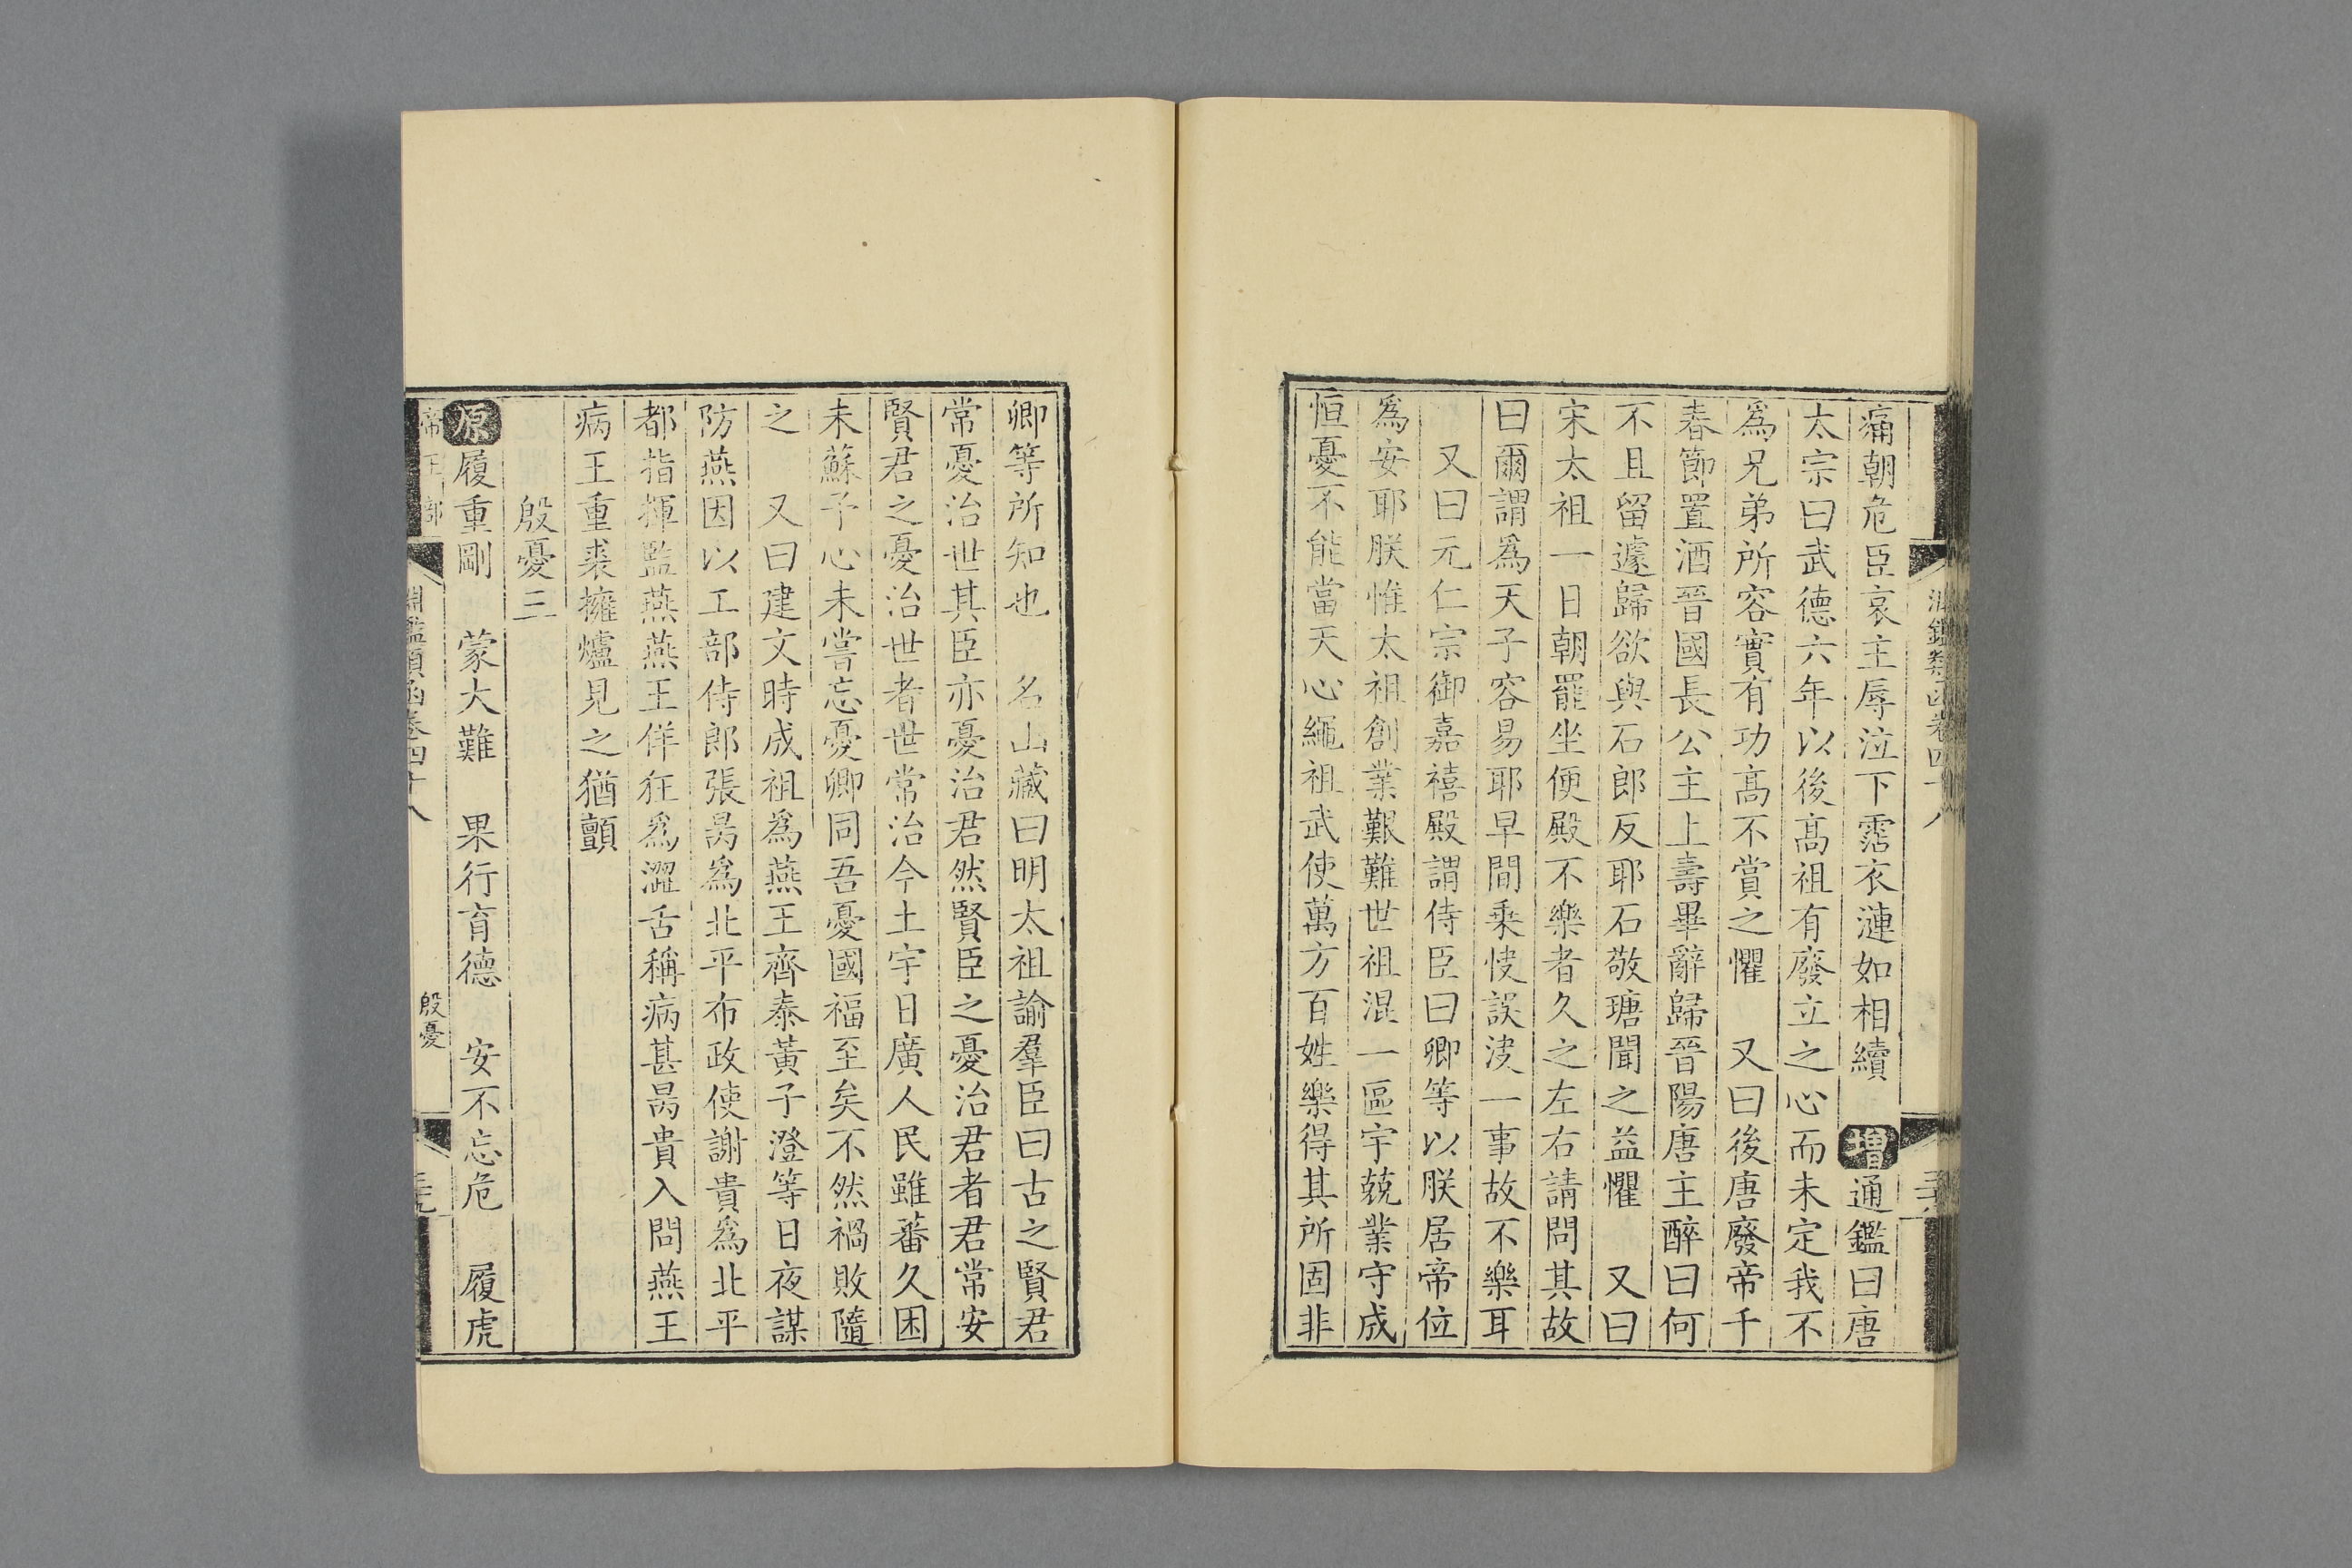 痛朝危臣哀主辱泣下霑衣漣如相續　增通鑑曰唐
太宗曰武德六年以後高祖有廢立之心而未定我不
爲兄弟所容實有功高不賞之懼　又曰後唐廢帝千
春節置酒晉國長公主上壽畢辭歸晉陽唐主醉曰何
不且留遽歸欲與石郎反耶石敬瑭聞之益懼　又曰
宋太祖一日朝罷坐便殿不樂者久之左右請問其故
曰爾謂爲天子容易耶早間乘快誤決一事故不樂耳
又曰元仁宗御嘉禧殿謂侍臣曰卿等以朕居帝位
爲安耶朕惟太祖創業艱難世祖混一區宇兢業守成
恒憂不能當天心繩祖武使萬方百姓樂得其所固非
卿等所知也　名山藏曰明太祖諭羣臣曰古之賢君
常憂治世其臣亦憂治君然賢臣之憂治君者君常安
賢君之憂治世者世常治今土宇日廣人民雖蕃久困
未蘇予心未嘗忘憂卿同吾憂國福至矣不然禍敗隨
之　又曰建文時成祖爲燕王齊泰黃子澄等日夜謀
防燕因以工部侍郎張昺爲北平布政使謝貴爲北平
都指揮監燕燕王佯狂爲澀舌稱病甚昺貴入問燕王
病王重裘擁爐見之猶顫
殷憂三
原履重剛　蒙大難　果行育德　安不忘危　履虎
帝王部　淵鑑類函卷四十八　殷憂